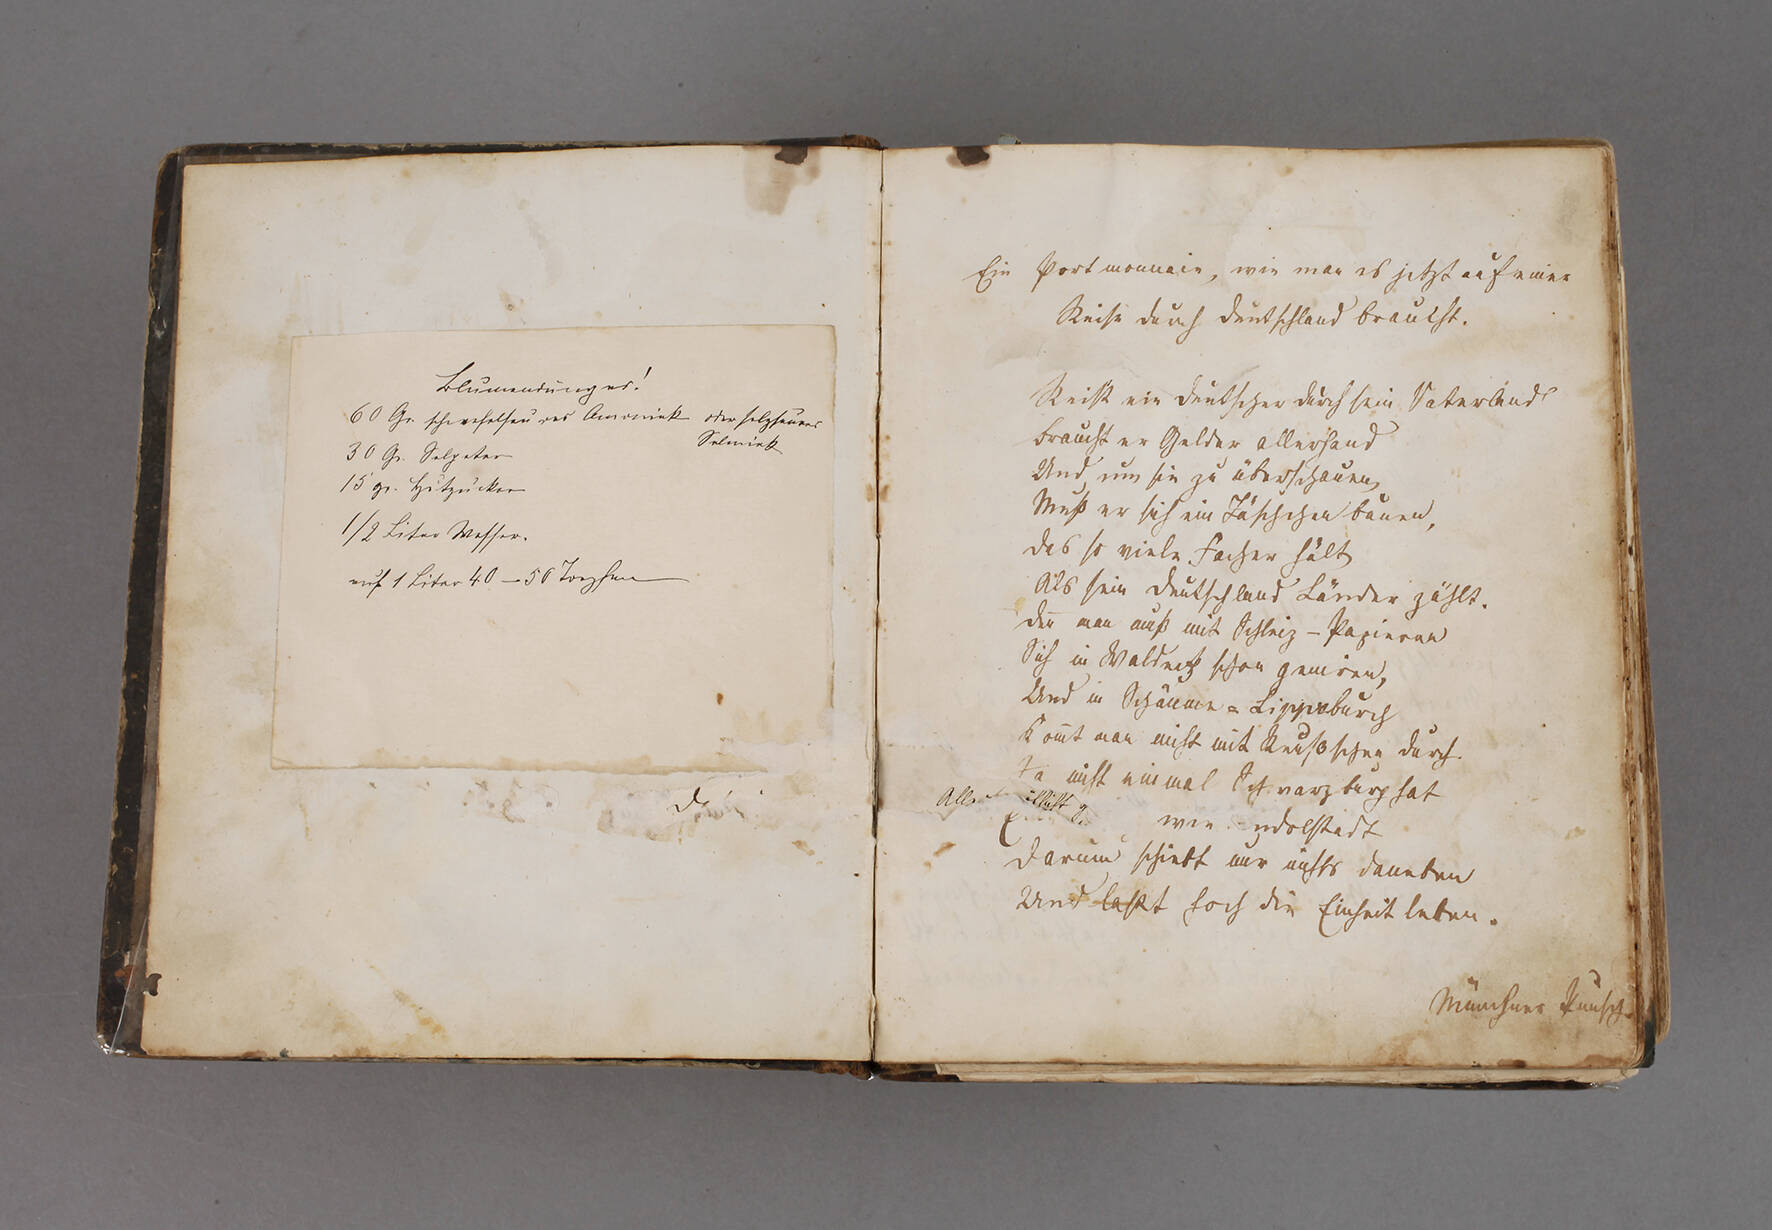 Blumendünger!
60 Gr. schwefelsaures Amoniak oder salzsaures
Salmiak
30 Gr. Salpeter
15 gr. Hutzucker
1/2 Liter Wasser.
auf 1 Liter 40 – 50 Tropfen
Ein Portmonnaie, wie man es jetzt auf einer
Reise durch Deutschland braucht.
Reist ein Deutscher durch sein Vaterland
Braucht er Gelder allerhand
Und, um sie zu überschauen,
Muß er sich ein Täschchen bauen,
Das so viele Fächer hält
Als sein Deutschland Länder zählt.
Den man muß mit Schleiz-Papieren
Sich in Waldeck schon geniren,
Und in Schaumb=Lippeburg
Komt man nicht mit Reußschen durch
Ja nicht einmal Schwarzburg hat
wie
Darum schiebt mir nichts daneben
Und laßt hoch die Einheit leben.
Münchner Punsch.